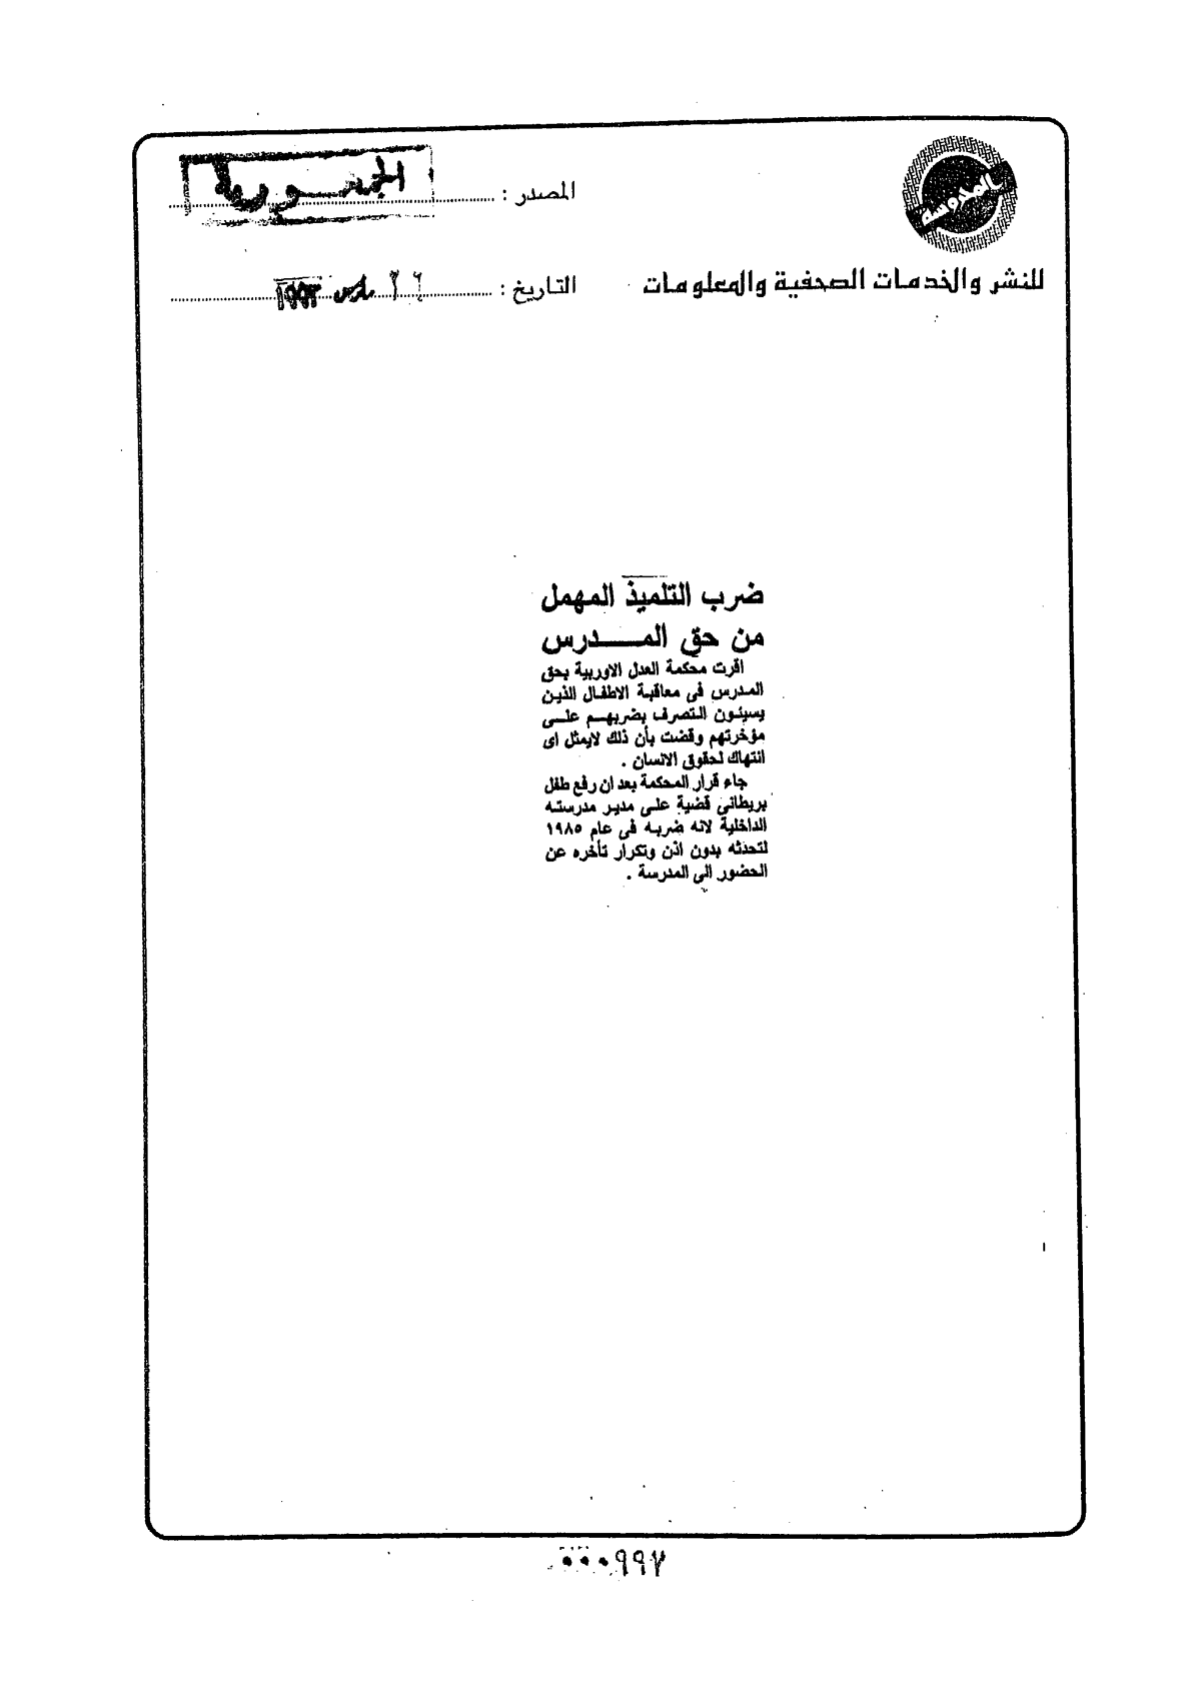 المصدر : الجمهورية
للنشر والخدمات الصحفية والمعلومات
التاريخ : ٢٦ مارس ١٩٩٣
ضرب التلميذ المهمل
من حق المـــدرس
اقرت محكمة العدل الاوربية بحق
المدرس فى معاقبة الاطفال الذين
يسيئون التصرف بضربهم على
مؤخرتهم وقضت بأن ذلك لايمثل اى
انتهاك لحقوق الانسان .
جاء قرار المحكمة بعد ان رفع طفل
بريطانى قضية على مدير مدرسته
الداخلية لانه ضربه فى عام ١٩٨٥
لتحدثه بدون اذن وتكرار تأخره عن
الحضور الى المدرسة .
٠٠٠٩٩٧